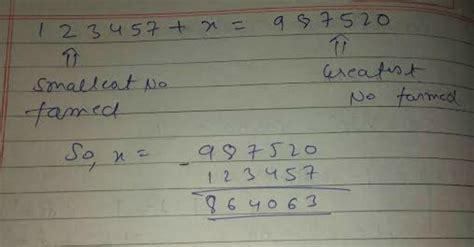 123457 + x = 987520
⇑ ⇑
Smallest No Greatest
formed No formed
So, x = 987520
- 123457
864063